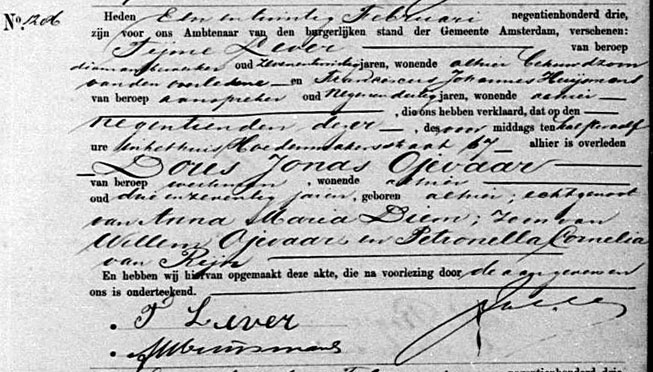 Heden Een en twintig Februari negentienhonderd drie,
No. 1206
zijn voor ons Ambtenaar van den burgerlijken stand der Gemeente Amsterdam, verschenen:
Tijme Lever van beroep
oud Zevenentwintig jaren, wonende alhier behuwdzoon
van den overledene en Franciscus Johannes Huijsmans
van beroep aanspreker oud Negenendertig jaren, wonende alhier
, die ons hebben verklaard, dat op den
Negentienden dezer, des voor middags ten half twaalf
ure in het huis 67 alhier is overleden
Dorus Jonas Ojevaar
van beroep werkman, wonende alhier
oud drie en zeventig jaren, geboren alhier; echtgenoot
van Anna Maria Diem; zoon van
Willem Ojevaar en Petronella Cornelia
van Rijn
En hebben wij hiervan opgemaakt deze akte, die na voorlezing door de aangevenen
ons is onderteekend.
T Lever